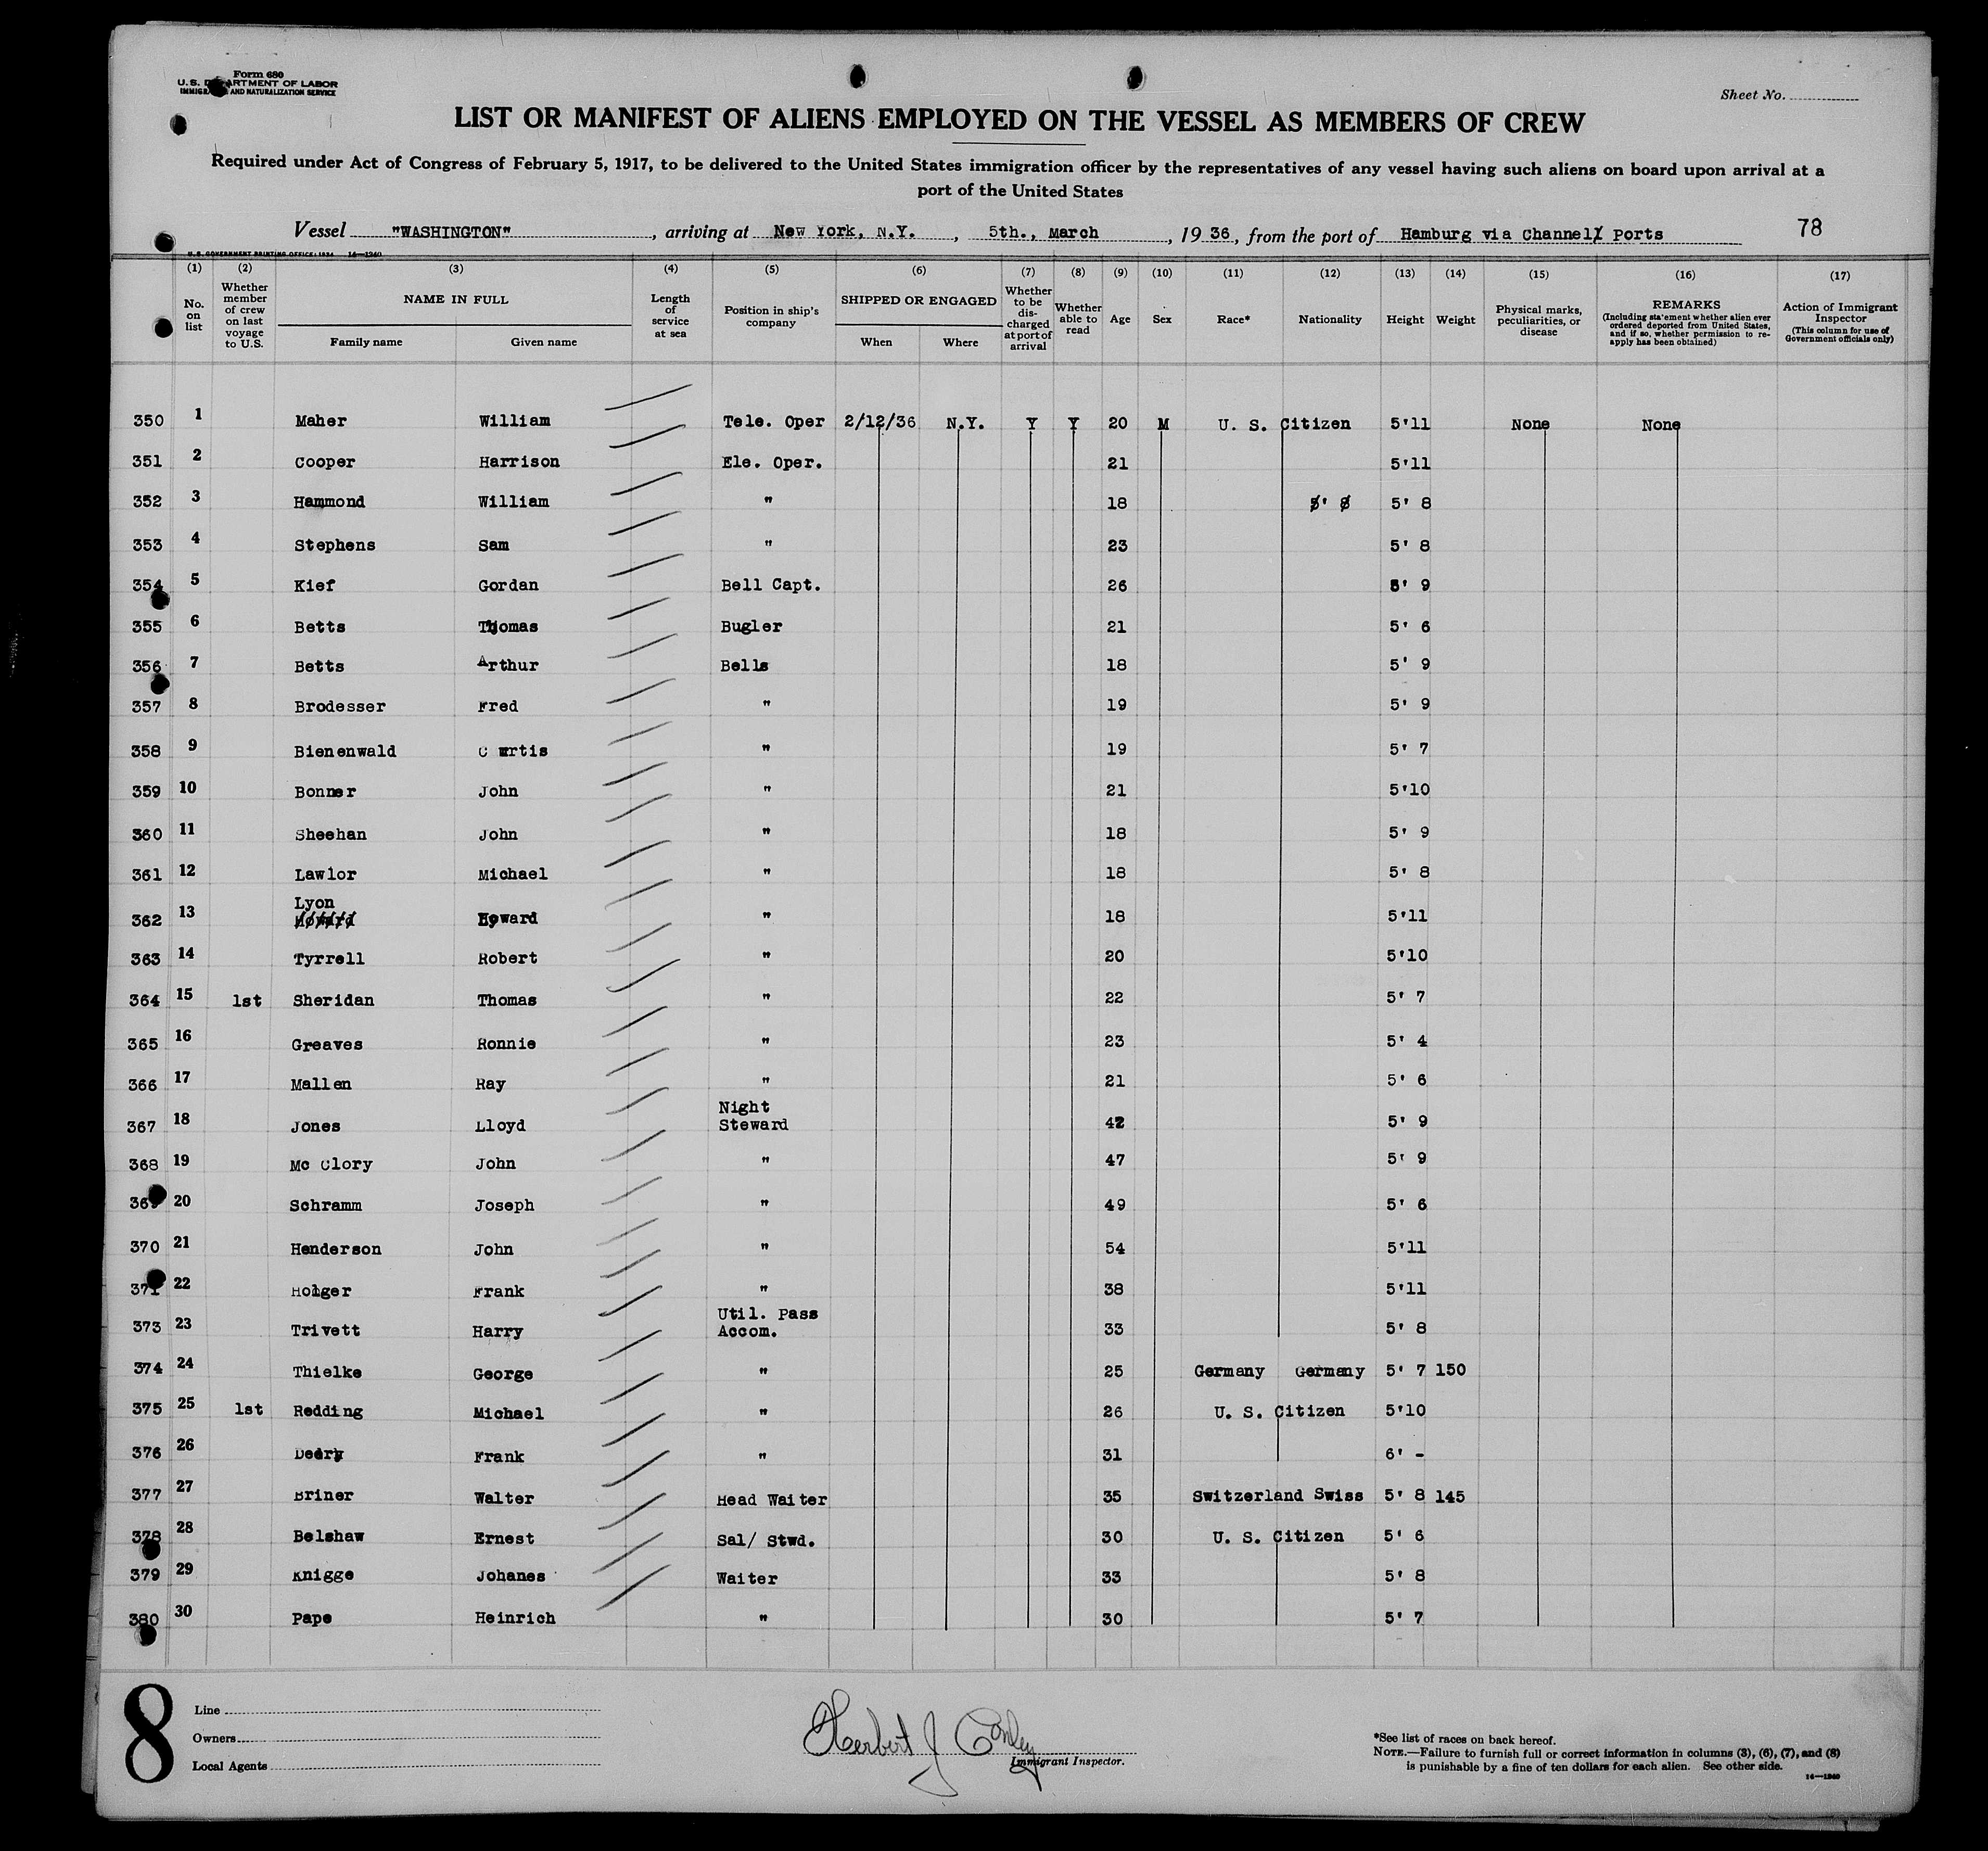 Form 680
U. S. DEPARTMENT OF LABOR
IMMIGRATION AND NATURALIZATION SERVICE
Sheet No.
LIST OR MANIFEST OF ALIENS EMPLOYED ON THE VESSEL AS MEMBERS OF CREW
Required under Act of Congress of February 5, 1917, to be delivered to the United States immigration officer by the representatives of any vessel having such aliens on board upon arrival at a
port of the United States
Vessel "WASHINGTON", arriving at New York, N.Y., 5th., March, 1936, from the port of Hamburg via Channel Ports 78
U. S. GOVERNMENT PRINTING OFFICE: 1934 14—1240
(1) (2) (3) (4) (5) (6) (7) (8) (9) (10) (11) (12) (13) (14) (15) (16) (17)
No. on list
Whether member of crew on last voyage to U.S.
NAME IN FULL
Family name Given name
Length of service at sea
Position in ship's company
SHIPPED OR ENGAGED
When Where
Whether to be discharged at port of arrival
Whether able to read
Age Sex Race* Nationality Height Weight
Physical marks, peculiarities, or disease
REMARKS
(Including statement whether alien ever ordered deported from United States, and if so, whether permission to re-apply has been obtained)
Action of Immigrant Inspector
(This column for use of Government officials only)
350 1 Maher William Tele. Oper 2/12/36 N.Y. Y Y 20 M U. S. Citizen 5'11 None None
351 2 Cooper Harrison Ele. Oper. 21 5'11
352 3 Hammond William " 18 5' 8 5' 8
353 4 Stephens Sam " 23 5' 8
354 5 Kief Gordan Bell Capt. 26 5' 9
355 6 Betts Thomas Bugler 21 5' 6
356 7 Betts Arthur Bells 18 5' 9
357 8 Brodesser Fred " 19 5' 9
358 9 Bienenwald Curtis " 19 5' 7
359 10 Bonner John " 21 5'10
360 11 Sheehan John " 18 5' 9
361 12 Lawlor Michael " 18 5' 8
Lyon
362 13 Howard Howard " 18 5'11
363 14 Tyrrell Robert " 20 5'10
364 15 1st Sheridan Thomas " 22 5' 7
365 16 Greaves Ronnie " 23 5' 4
366 17 Mallen Ray " 21 5' 6
Night
367 18 Jones Lloyd Steward 42 5' 9
368 19 Mc Clory John " 47 5' 9
369 20 Schramm Joseph " 49 5' 6
370 21 Henderson John " 54 5'11
371 22 Holger Frank " 38 5'11
Util. Pass
373 23 Trivett Harry Accom. 33 5' 8
374 24 Thielke George " 25 Germany Germany 5' 7 150
375 25 1st Redding Michael " 26 U. S. Citizen 5'10
376 26 Frank " 31 6' -
377 27 Briner Walter Head Waiter 35 Switzerland Swiss 5' 8 145
378 28 Belshaw Ernest Sal/ Stwd. 30 U. S. Citizen 5' 6
379 29 Knigge Johanes Waiter 33 5' 8
380 30 Pape Heinrich " 30 5' 7
8
Line
Owners
Local Agents
Herbert J Conley
Immigrant Inspector.
*See list of races on back hereof.
NOTE.—Failure to furnish full or correct information in columns (3), (6), (7), and (8)
is punishable by a fine of ten dollars for each alien. See other side.
14—1240